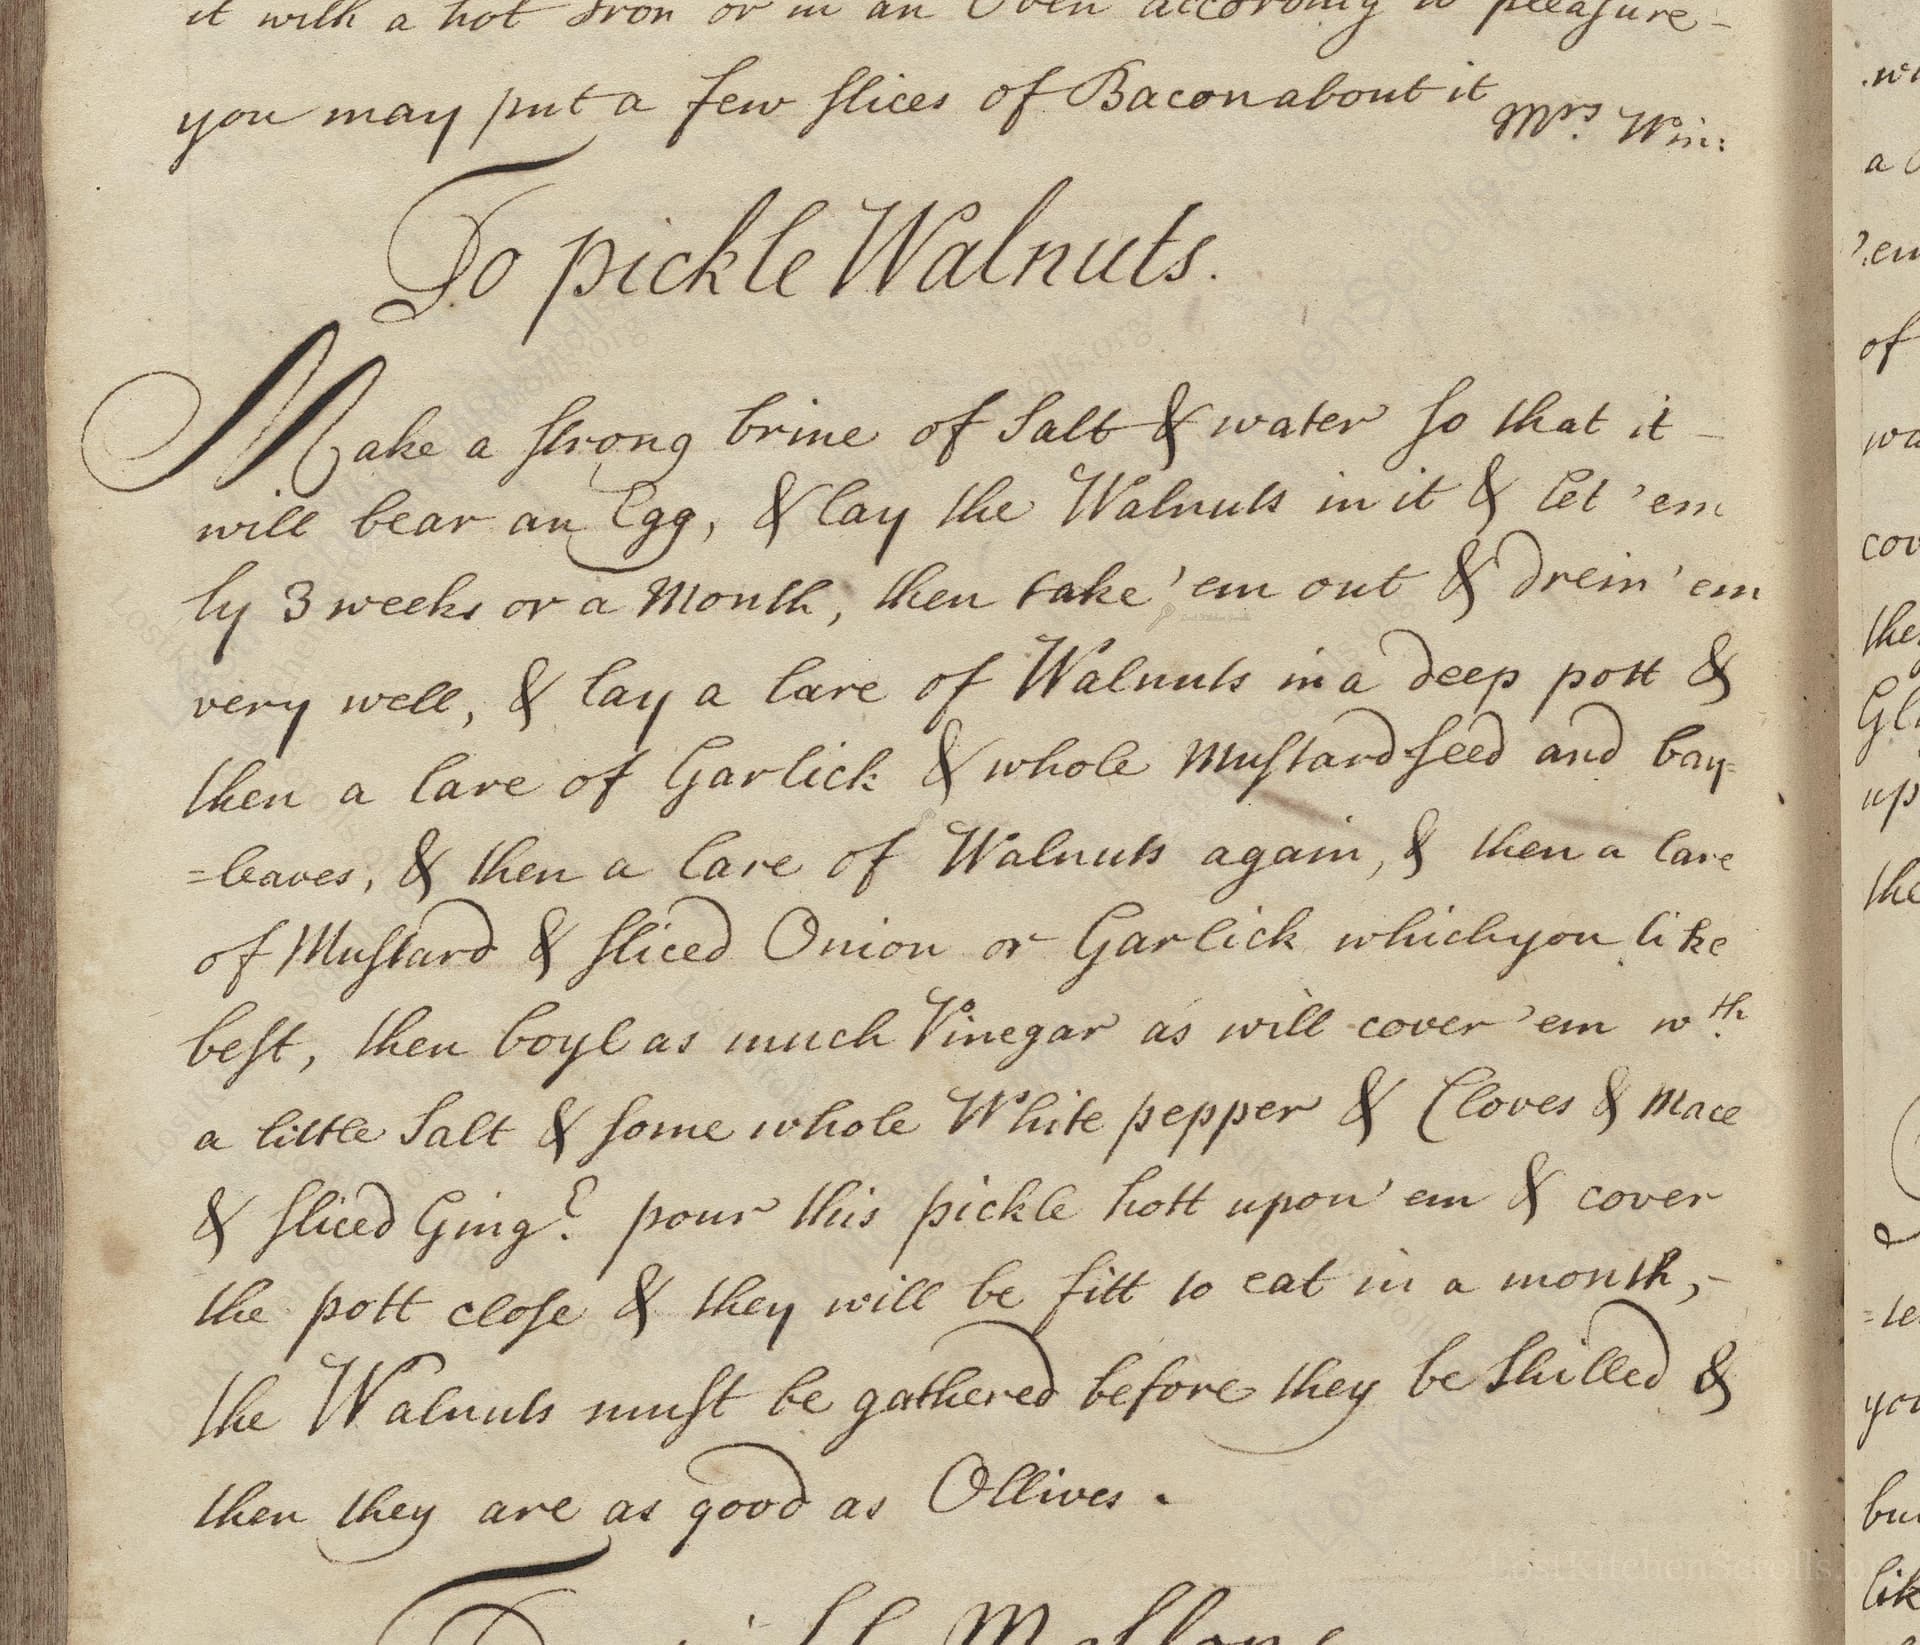 it with a hot Iron or in an Oven according to pleasure -
you may put a few slices of Bacon about it
Mrs. Win:
To pickle Walnuts.
Make a strong brine of Salt & water so that it -
will bear an Egg, & lay the Walnuts in it & let 'em
ly 3 weeks or a Month, then take 'em out & drein 'em
very well, & lay a lare of Walnuts in a deep pott &
then a lare of Garlick & whole Mustard seed and bay=
=leaves, & then a lare of Walnuts again, & then a lare
of Mustard & sliced Onion or Garlick which you like
best, then boyl as much Vinegar as will cover 'em wth.
a little Salt & some whole White pepper & Cloves & Mace
& sliced Gingr. pour this pickle hott upon 'em & cover
the pott close & they will be fitt to eat in a month, -
the Walnuts must be gathered before they be Shilled &
then they are as good as Ollives.
of
cov
the
up
the
you
lik
LostKitchenScrolls.org